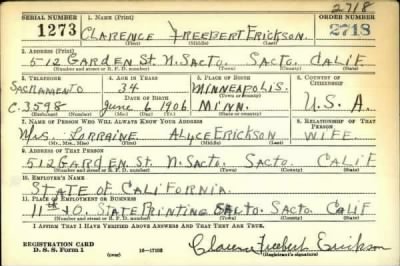 2718
SERIAL NUMBER 1. NAME (Print) ORDER NUMBER
1273 CLARENCE FREEBERT ERICKSON. 2718
(First) (Middle) (Last)
2. ADDRESS (Print)
512 GARDEN St. N. SACTO. SACTO. CALIF.
(Number and street or R. F. D. number) (Town) (County) (State)
3. TELEPHONE 4. AGE IN YEARS 5. PLACE OF BIRTH 6. COUNTRY OF CITIZENSHIP
SACRAMENTO 34 MINNEAPOLIS.
DATE OF BIRTH (Town or county)
C. 3598 June 6 1906 MINN. U.S.A.
(Exchange) (Number) (Mo.) (Day) (Yr.) (State or country)
7. NAME OF PERSON WHO WILL ALWAYS KNOW YOUR ADDRESS 8. RELATIONSHIP OF THAT PERSON
Mrs. LORRAINE ALYCE ERICKSON WIFE.
(Mr., Mrs., Miss) (First) (Middle) (Last)
9. ADDRESS OF THAT PERSON
512 GARDEN. St. N. SACTO. SACTO. CALIF
(Number and street or R. F. D. number) (Town) (County) (State)
10. EMPLOYER'S NAME
STATE OF CALIFORNIA.
11. PLACE OF EMPLOYMENT OR BUSINESS
11th O. STATE PRINTING SACTO. SACTO. CALIF
(Number and street or R. F. D. number) (Town) (County) (State)
I AFFIRM THAT I HAVE VERIFIED ABOVE ANSWERS AND THAT THEY ARE TRUE.
REGISTRATION CARD
D. S. S. Form 1 (over) 16—17105 Clarence Freebert Erickson
(Registrant's signature)